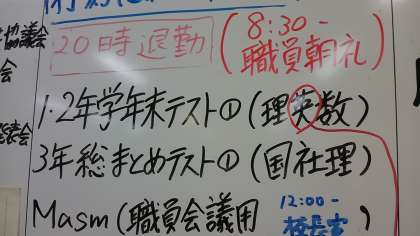 協議会
20時退勤
8:30-
(職員朝礼)
会
1.2年学年末テスト①(理英数)
表会
3年総まとめテスト①(国社理)
Masm(職員会議用
12:00-
校長室)